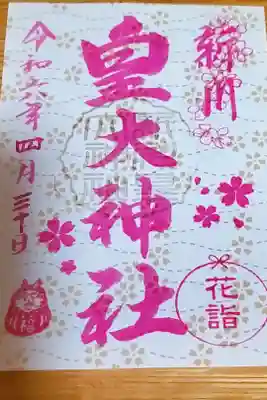 新開
皇大神社
花詣
令和六年四月三十日
福